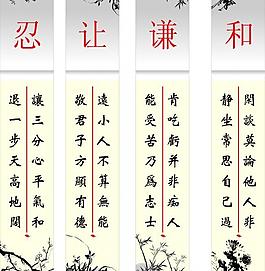 忍
讓三分心平氣和
退一步天高地闊
让
遠小人不算無能
敬君子方顯有德
谦
肯吃虧并非痴人
能受苦乃爲志士
和
閑談莫論他人非
靜坐常思自己過